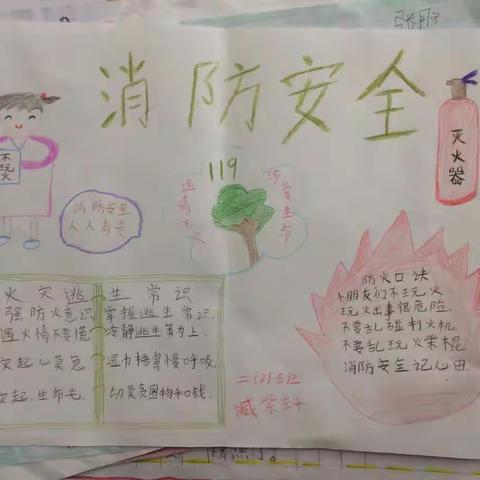 张
消防安全
不玩火
灭火器
119
远离火灾
珍爱生命
消防安全
人人有责
火灾逃生常识
强防火意识 掌握逃生常识.
遇火情不要慌 冷静逃生第为上.
火起心莫急. 湿巾捂鼻慢呼吸.
火起.生命先. 切莫贪图物和钱.
防火口决
小朋友们不玩火
玩火出事很危险.
不要乱碰打火机.
不要乱玩火柴棍
消防安全记心田.
二(2)班
臧紫轩